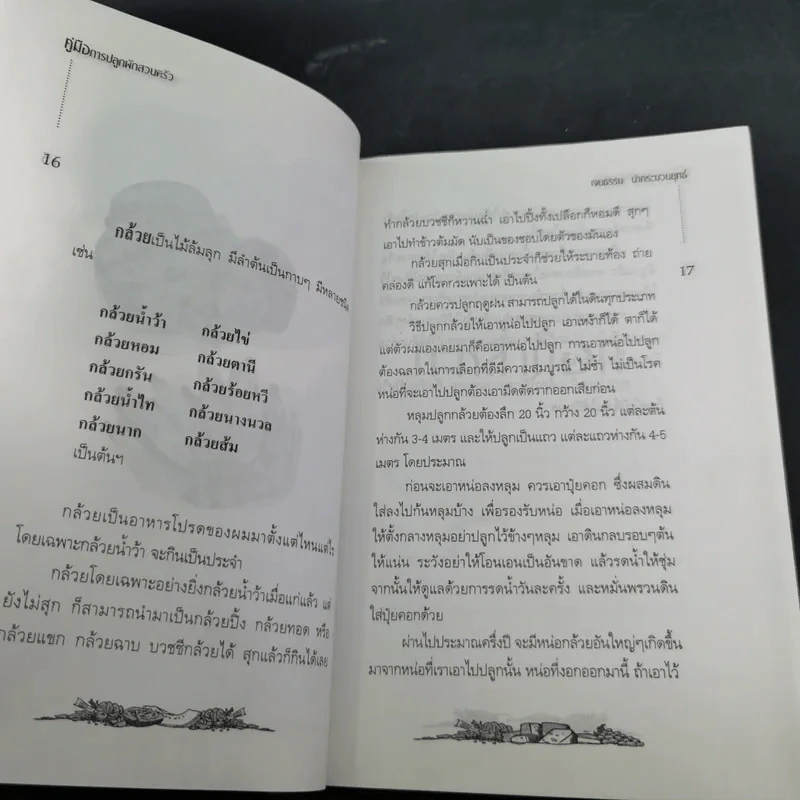 คู่มือการปลูกผักสวนครัว
16
กล้วยเป็นไม้ล้มลุก มีลำต้นเป็นกาบๆ มีหลายชนิด
เช่น
กล้วยน้ำว้า กล้วยไข่
กล้วยหอม กล้วยตานี
กล้วยกรัน กล้วยร้อยหวี
กล้วยน้ำไท กล้วยนางนวล
กล้วยนาก กล้วยส้ม
เป็นต้นฯ
กล้วยเป็นอาหารโปรดของผมมาตั้งแต่ไหนแต่ไร
โดยเฉพาะกล้วยน้ำว้า จะกินเป็นประจำ
กล้วยโดยเฉพาะอย่างยิ่งกล้วยน้ำว้าเมื่อแก่แล้ว แต่
ยังไม่สุก ก็สามารถนำมาเป็นกล้วยปิ้ง กล้วยทอด หรือ
กล้วยแขก กล้วยฉาบ บวชชีกล้วยได้ สุกแล้วก็กินได้เลย
เจนธรรม นำกระบวนยุทธ์
17
ทำกล้วยบวชชีก็หวานฉ่ำ เอาไปปิ้งทั้งเปลือกก็หอมดี สุกๆ
เอาไปทำข้าวต้มมัด นับเป็นของชอบโดยตัวของมันเอง
กล้วยสุกเมื่อกินเป็นประจำก็ช่วยให้ระบายท้อง ถ่าย
คล่องดี แก้โรคกระเพาะได้ เป็นต้น
กล้วยควรปลูกฤดูฝน สามารถปลูกได้ในดินทุกประเภท
วิธีปลูกกล้วยให้เอาหน่อไปปลูก เอาเหง้าก็ได้ ตาก็ได้
แต่ตัวผมเองเคยมาก็คือเอาหน่อไปปลูก การเอาหน่อไปปลูก
ต้องฉลาดในการเลือกที่ดีมีความสมบูรณ์ ไม่ช้ำ ไม่เป็นโรค
หน่อที่จะเอาไปปลูกต้องเอามีดตัดรากออกเสียก่อน
หลุมปลูกกล้วยต้องลึก 20 นิ้ว กว้าง 20 นิ้ว แต่ละต้น
ห่างกัน 3-4 เมตร และให้ปลูกเป็นแถว แต่ละแถวห่างกัน 4-5
เมตร โดยประมาณ
ก่อนจะเอาหน่อลงหลุม ควรเอาปุ๋ยคอก ซึ่งผสมดิน
ใส่ลงไปก้นหลุมบ้าง เพื่อรองรับหน่อ เมื่อเอาหน่อลงหลุม
ให้ตั้งกลางหลุมอย่าปลูกไว้ข้างๆหลุม เอาดินกลบรอบๆต้น
ให้แน่น ระวังอย่าให้โอนเอนเป็นอันขาด แล้วรดน้ำให้ชุ่ม
จากนั้นให้ดูแลด้วยการรดน้ำวันละครั้ง และหมั่นพรวนดิน
ใส่ปุ๋ยคอกด้วย
ผ่านไปประมาณครึ่งปี จะมีหน่อกล้วยอันใหญ่ๆเกิดขึ้น
มาจากหน่อที่เราเอาไปปลูกนั้น หน่อที่งอกออกมานี้ ถ้าเอาไว้